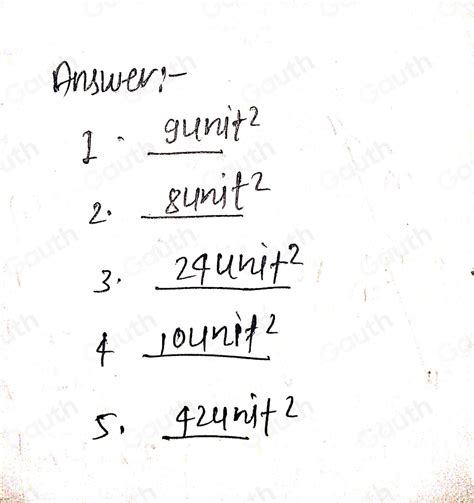 Answer:-
1. 9unit²
2. 8unit²
3. 24unit²
4 10unit²
5. 42unit²